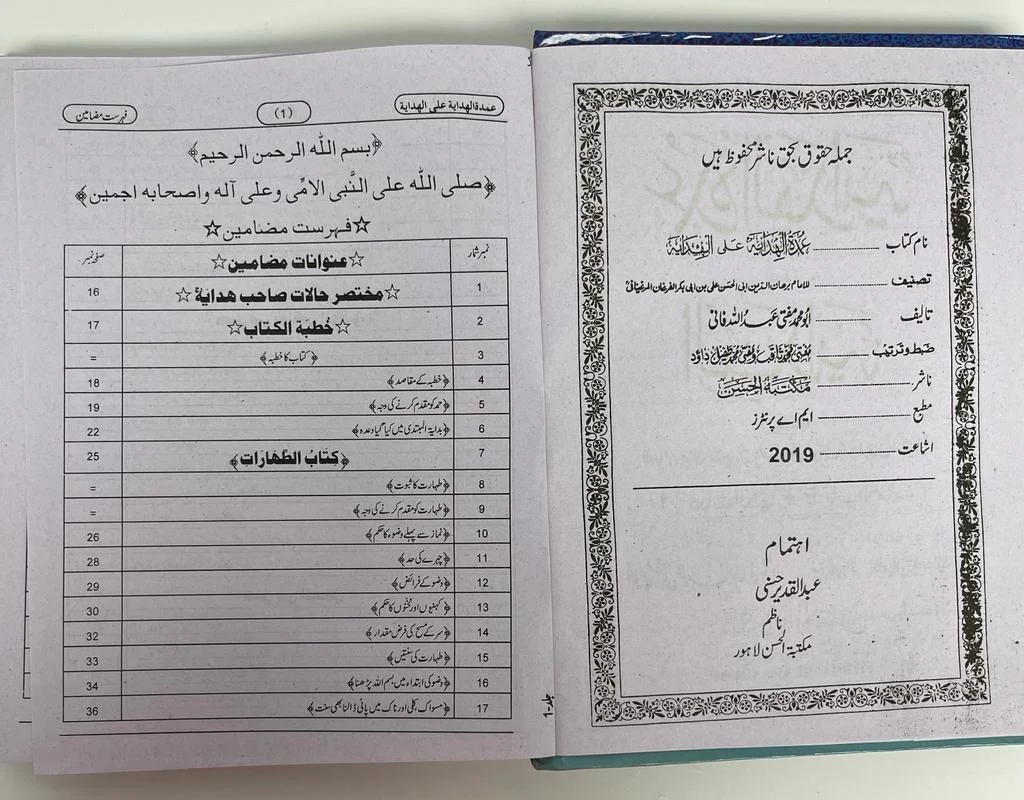 جملہ حقوق بحق ناشر محفوظ ہیں
نام کتاب ............ عمدۃ الہدایہ علی الہدایہ
تصنیف ............ للامام برھان الدین ابی الحسن علی بن ابی بکر الفرغانی المرغینانیؒ
تالیف ............ ابو محمد مفتی عبداللہ فانی
ضبط و ترتیب ............ مفتی محمد ثاقب ومفتی محمد طفیل داؤد
ناشر ............ مکتبۃ الحسن
مطبع ............ ایم اے پرنٹرز
اشاعت ............ 2019
اہتمام
عبدالقدیر حسنی
ناظم
مکتبۃ الحسن لاہور
عمدة الهداية على الهداية (1) فہرست مضامین
﴿بسم الله الرحمن الرحيم﴾
﴿صلى الله على النَّبى الامّى وعلى آله واصحابه اجمين﴾
☆فہرست مضامین☆
نمبر شمار ☆عنوانات مضامین☆ صفحہ نمبر
1 ☆مختصر حالات صاحب ھدایہؒ☆ 16
2 ☆خُطبَة الکتاب☆ 17
3 ﴿کتاب کا خطبہ﴾ =
4 ﴿خطبہ کے مقاصد﴾ 18
5 ﴿حمد کو مقدم کرنے کی وجہ﴾ 19
6 ﴿بدایۃ المبتدی میں کیا گیا وعدہ﴾ 22
7 ﴿کِتابُ الطَهارَات﴾ 25
8 ﴿طہارت کا ثبوت﴾ =
9 ﴿طہارت کو مقدم کرنے کی وجہ﴾ =
10 ﴿نماز سے پہلے وضوء کا حکم﴾ 26
11 ﴿چہرے کی حد﴾ 28
12 ﴿وضو کے فرائض﴾ 29
13 ﴿کہنیوں اور ٹخنوں کا حکم﴾ 30
14 ﴿سر کے مسح کی فرض مقدار﴾ 32
15 ﴿طہارت کی سنتیں﴾ 33
16 ﴿وضو کی ابتداء میں بسم اللہ پڑھنا﴾ 34
17 ﴿مسواک کلی اور ناک میں پانی ڈالنا بھی سنت﴾ 36
جلد-1